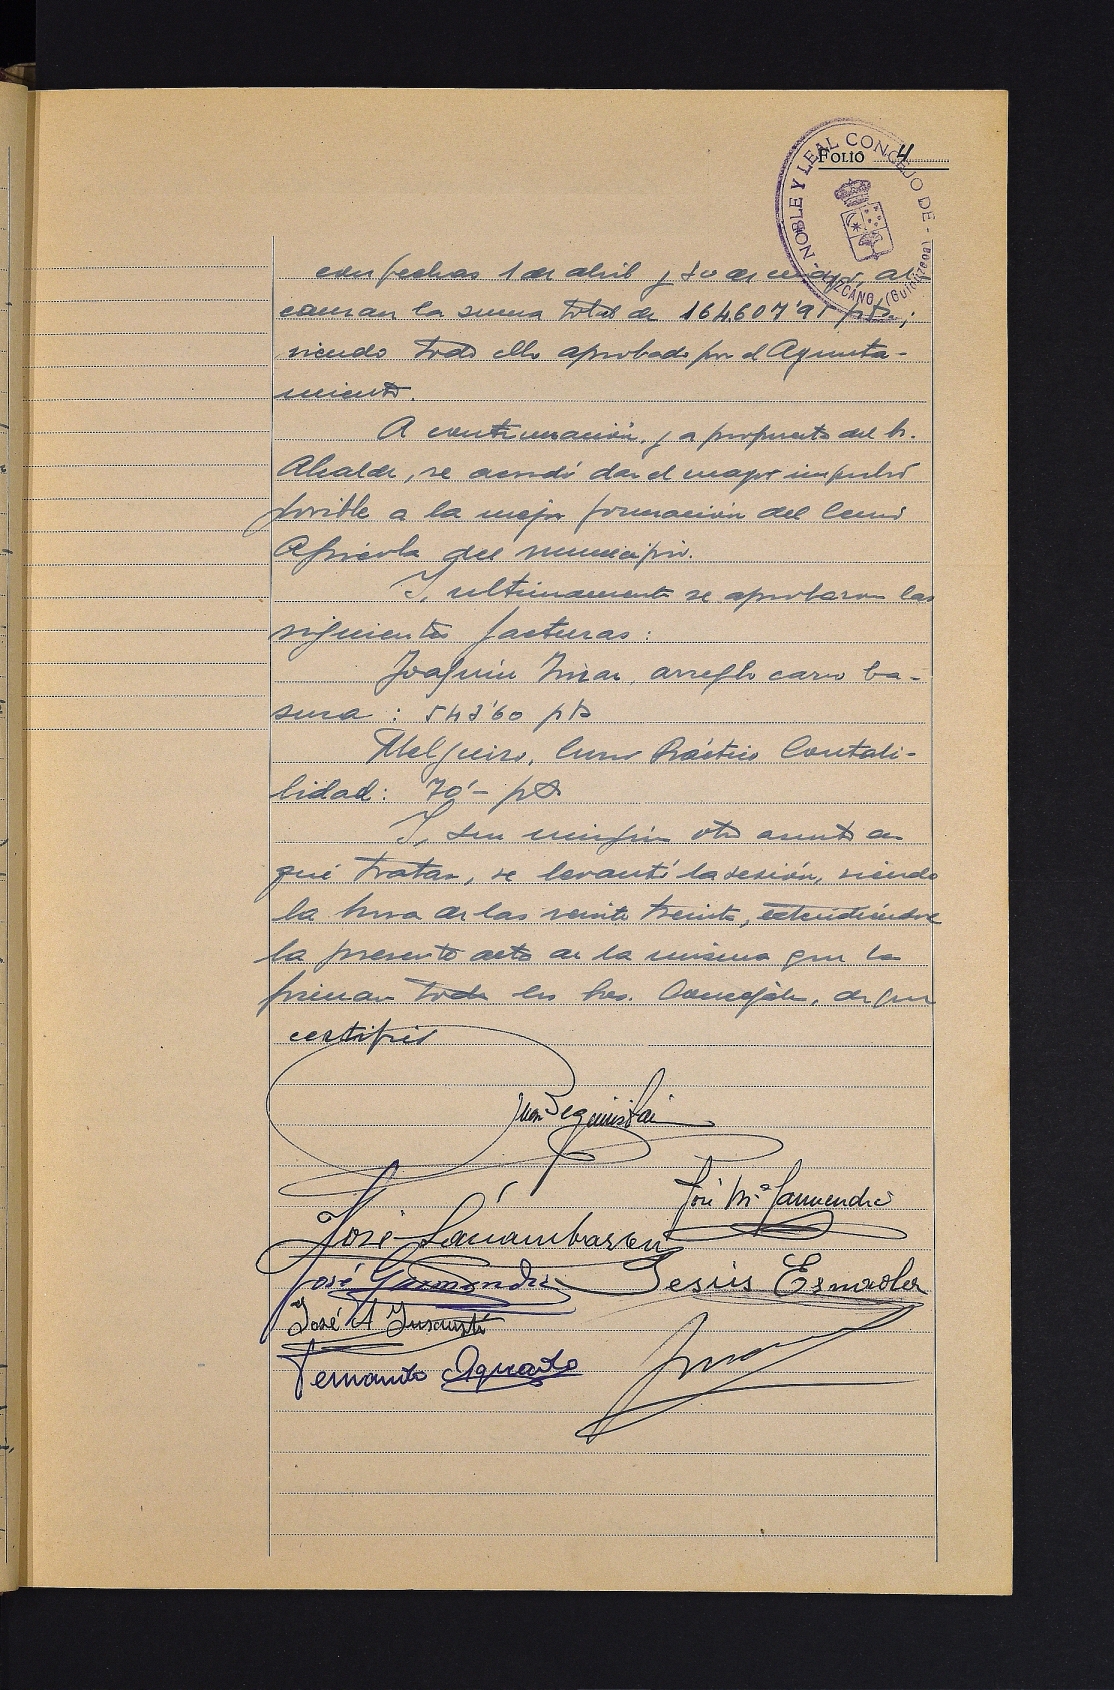 FOLIO 4
NOBLE Y LEAL CONCEJO DE LIZCANO (Guipúzcoa)
con fechas 1 de abril y 30 de mayo, al
canzan la suma total de 164.607'95 pts.;
siendo todo ello aprobado por el Ayunta-
miento.
A continuación, y a propuesta del Sr.
Alcalde, se acordó dar el mayor impulso
posible a la mejor formación del Censo
Agrícola del municipio.
Y, ultimamente se aprobaron las
siguientes facturas:
Joaquín arreglo carro ba-
sura: 543'60 pts
Melgueiro, Curso Práctico Contabi-
lidad: 70'- pts
Y, sin ningún otro asunto de
qué tratar, se levantó la sesión, siendo
la hora de las veinte treinta, extendiéndose
la presente acta de la misma que la
firman todos los Sres. Concejales, de que
certifico
Juan Beguiristain
José Mª Garmendia
José
José Garmendia Jesús Esnaola
José A Insausti
Fernando Aguado